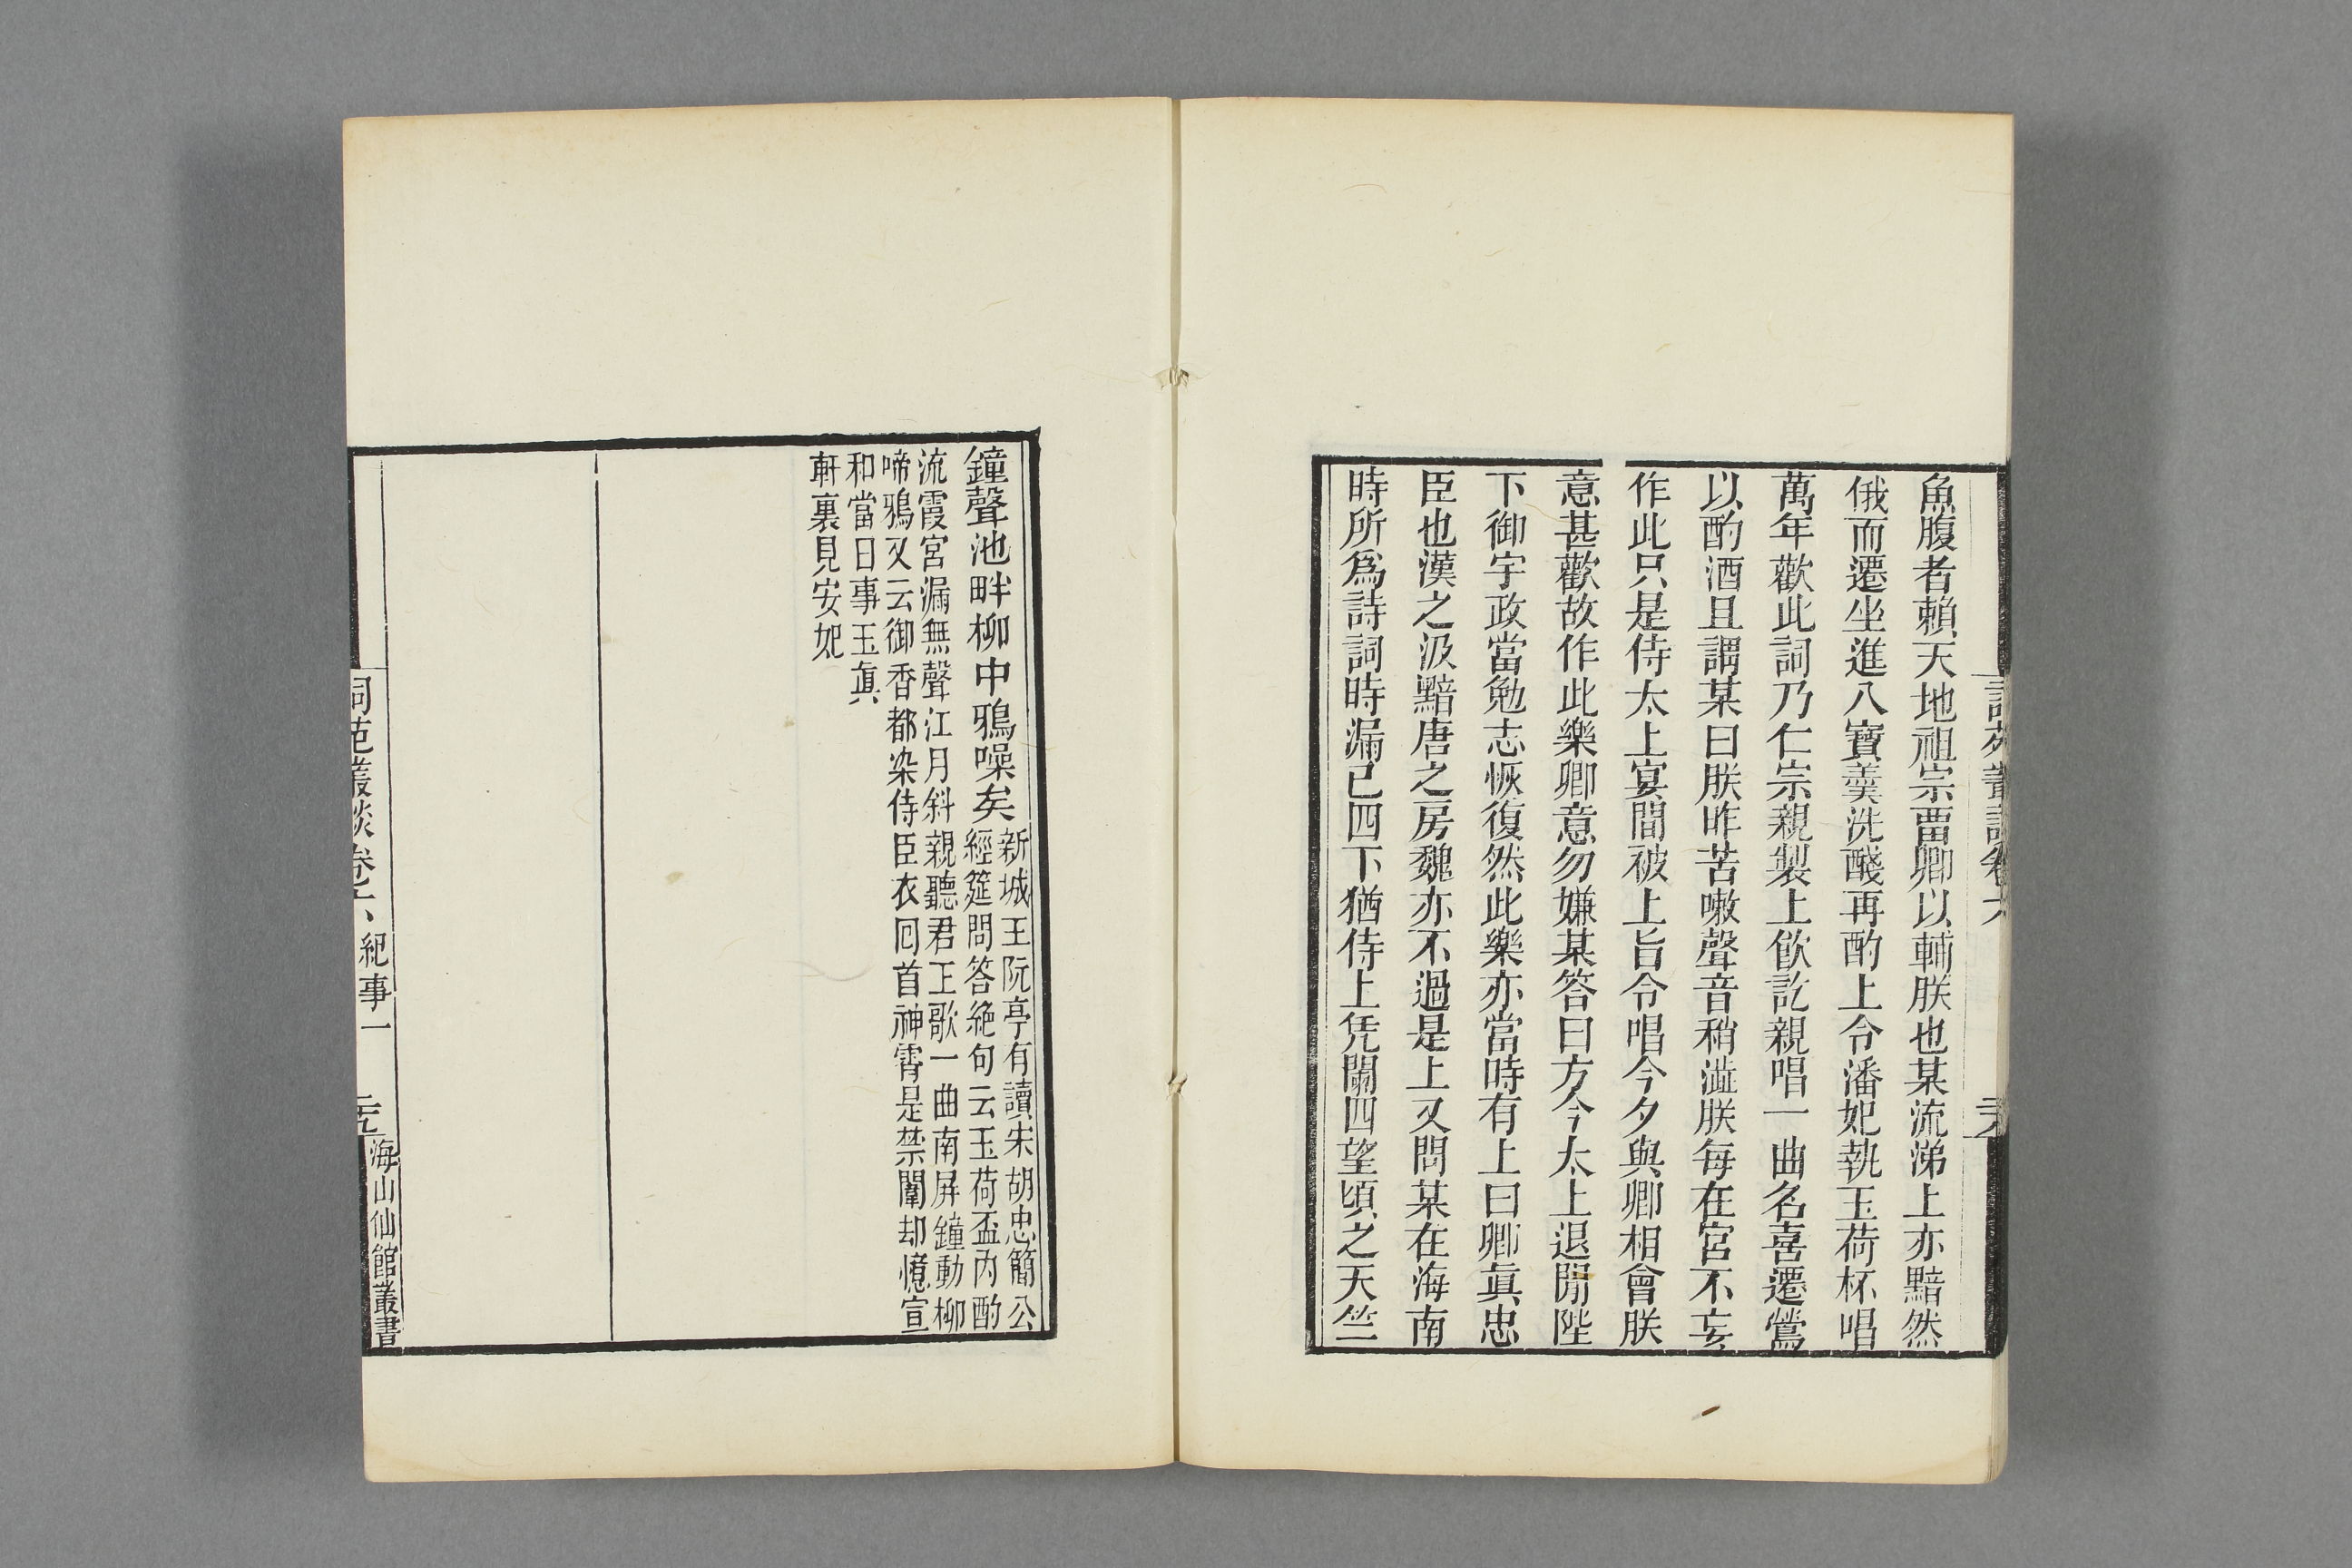 魚腹者賴天地祖宗畱卿以輔朕也某流涕上亦黯然
俄而遷坐進八寶羹洗醆再酌上令潘妃執玉荷杯唱
萬年歡此詞乃仁宗親製上飮訖親唱一曲名喜遷鶯
以酌酒且謂某曰朕昨苦嗽聲音稍澁朕每在宮不妄
作此只是侍太上宴間被上旨令唱今夕與卿相會朕
意甚歡故作此樂卿意勿嫌某答曰方今太上退閒陛
下御宇政當勉志恢復然此樂亦當時有上曰卿眞忠
臣也漢之汲黯唐之房魏亦不過是上又問某在海南
時所爲詩詞時漏已四下猶侍上凭闌四望頃之天竺
鐘聲池畔柳中鴉噪矣
新城王阮亭有讀宋胡忠簡公
經筵問答絶句云玉荷盃內酌
流霞宮漏無聲江月斜親聽君王歌一曲南屏鐘動柳
啼鴉又云御香都染侍臣衣囘首神霄是禁闈却憶宣
和當日事玉眞
軒裏見安妃
詞苑叢談卷六 紀事一
海山仙館叢書